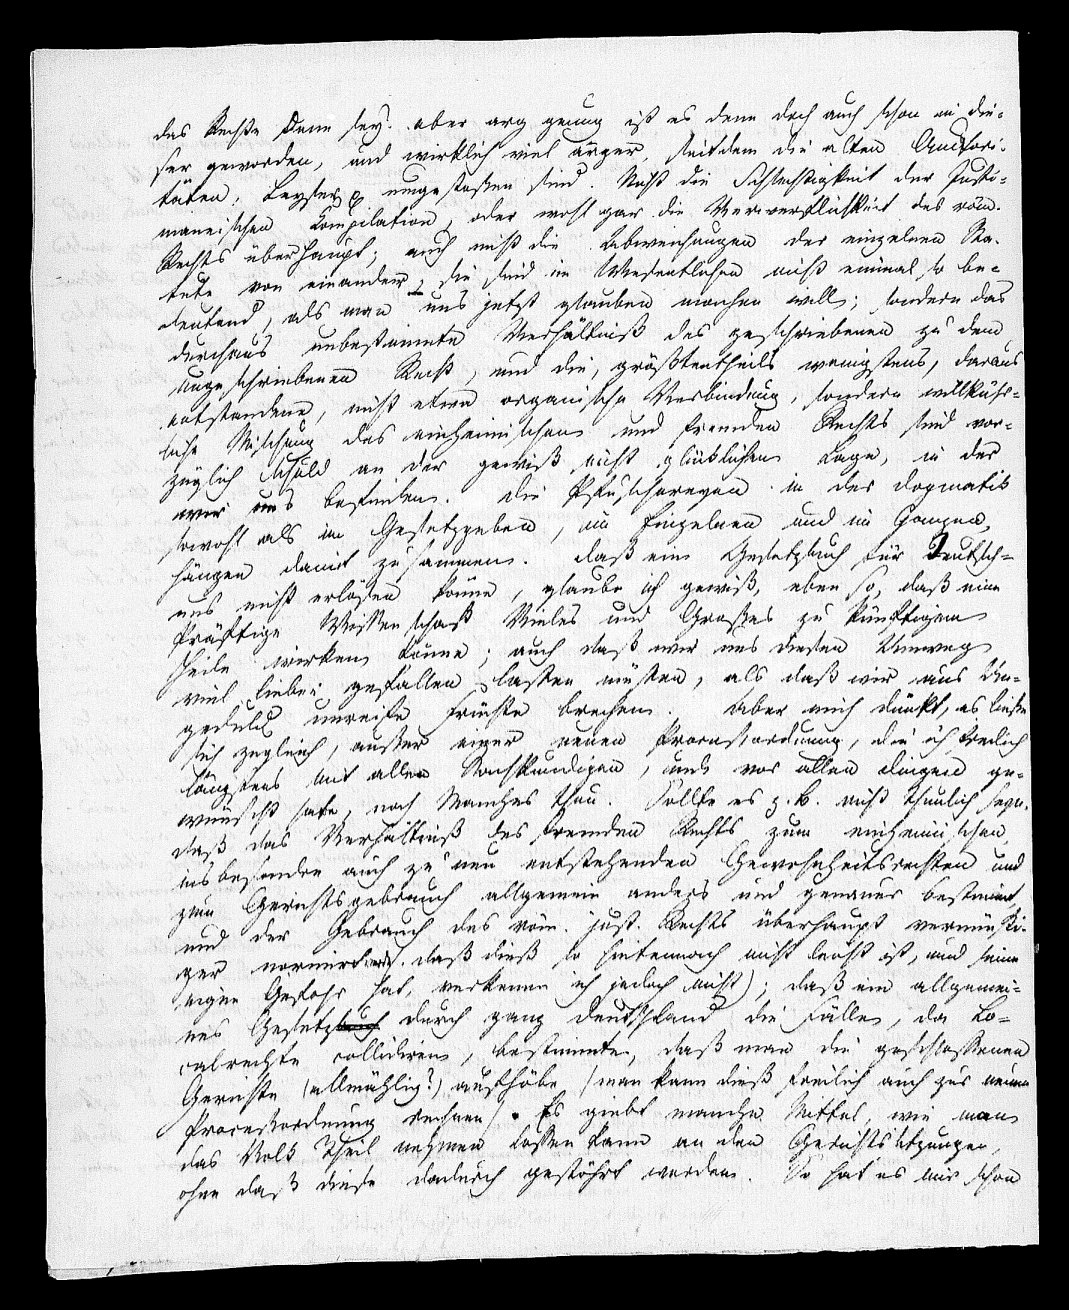 des Rechts denn sey. aber arg genug ist es denn doch auch schon in die-
ser geworden, und wirklich viel ärger, seitdem die alten Autori-
täten, Leyser pp umgestoßen sind. Nicht die Schlechtigkeit der Justi-
nianeischen Compilation, oder wohl gar die Verwerflichkeit des röm.
Rechts überhaupt; auch nicht die Abweichungen der einzelnen Sta-
tute von einander, sie sind im Wesentlichen nicht einmal so be-
deutend, als man uns jetzt glauben machen will; sondern das
durchaus unbestimmte Verhältniß des geschriebenen zu dem
ungeschriebenen Recht, und die, größtentheils wenigstens, daraus
entstandene, nicht etwa organische Verbindung, sondern willkühr-
liche Mischung des einheimischen und fremden Rechts sind vor-
züglich Schuld an der gewiß nicht glücklichen Lage, in der
wir uns befinden. Die Pfuschereyen in der Dogmatik
sowohl als im Gesetzgeben, im Einzelnen und im Ganzen,
hängen damit zusammen. Daß ein Gesetzbuch für Deutsch-
uns nicht erlösen könne, glaube ich gewiß, eben so, daß eine
kräftige Wissenschaft Vieles und Großes zu künftigem
Heile wirken könne; auch daß wir uns diesen Umweg
viel lieber gefallen lassen müßten, als daß wir aus Un-
geduld unreife Früchte brechen. Aber mich dünkt, es ließe
sich zugleich, außer einer neuen Proceßordnung, die ich freilich
längstens mit allen Sachkundigen, und vor allen Dingen ge-
wünscht habe, noch Manches thun. Sollte es z. B. nicht thunlich seyn,
daß das Verhältniß des fremden Rechts zum einheimischen
insbesondre auch zu neu entstehenden Gewohnheitsrechten und
zum Gerichtsgebrauch allgemein anders und genauer bestimmt,
und der Gebrauch des röm. just. Rechts überhaupt vernünfti-
ger normirt werde. daß dieß so hintennach nicht leicht ist, und seine
eigne Gefahr hat, verkenne ich jedoch nicht); daß ein allgemei-
nes Gesetzbuch durch ganz Deutschland die Fälle, da Lo-
calrechte collidiren, bestimmte, daß man die geschlossenen
Gerichte (allmählig?) aufhöbe, (man kann dieß freilich auch zur neuen
Proceßordnung rechnen). Es giebt manche Mittel, wie man
das Volk Theil nehmen lassen kann an den Gerichtssitzungen,
ohne daß diese dadurch gestöhrt werden. So hat es mir schon